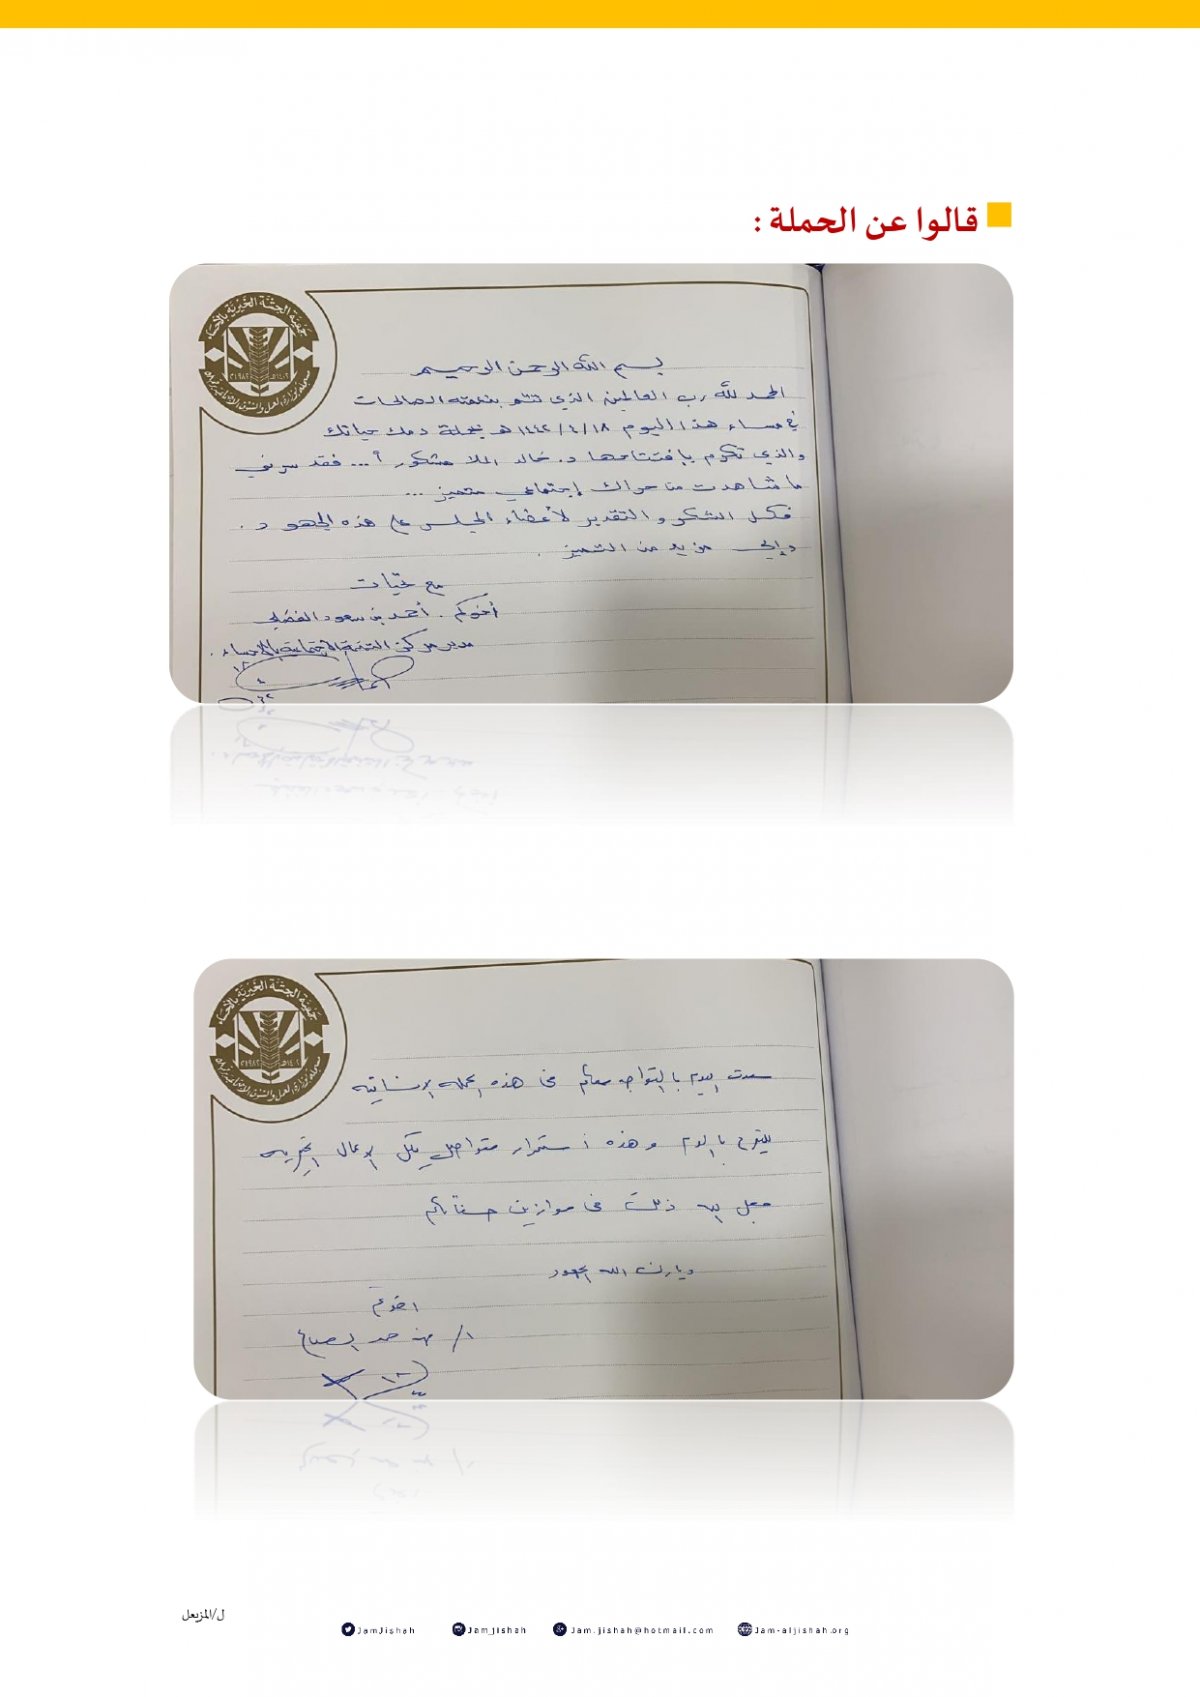 قالوا عن الحملة :
جمعية الجشة الخيرية بالأحساء
١٤٠٢هـ ١٩٨٢م
بسم الله الرحمن الرحيم
الحمد لله رب العالمين الذي تتم بنعمته الصالحات
في مساء هذا اليوم ١٤٤٢/٤/١٨هـ بحملة دمك حياتك
والذي تكرم بإفتتاحها د. خالد الملا مشكور أ ... فقد سرني
ما شاهدت من حراك إجتماعي متميز ...
فكل الشكر والتقدير لأعضاء المجلس على هذه الجهود .
وإلى مزيد من التميز .
مع تحيات
أخوكم . أحمد بن سعود الفضلي
مدير مركز التنمية الإجتماعية بالأحساء .
جمعية الجشة الخيرية بالأحساء
١٤٠٢هـ ١٩٨٢م
سعدت اليوم بالتواجد معكم في هذه الحملة الإنسانية
للتبرع بالدم وهذه استمرار متواصل لكل الاعمال الخيرية
جعل الله ذلك في موازين حسناتكم
وبارك الله الجهود
اخوكم
ل/المزيعل
JamJishah
Jamjishah
Jam.jishah@hotmail.com
Jam-aljishah.org